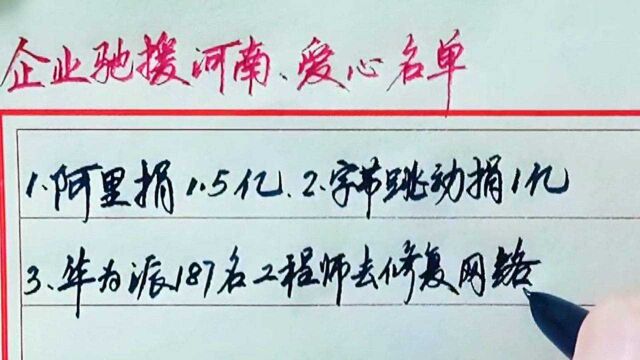 企业驰援河南、爱心名单
1.阿里捐1.5亿、2.字节跳动捐1亿
3、华为派187名工程师去修复网络